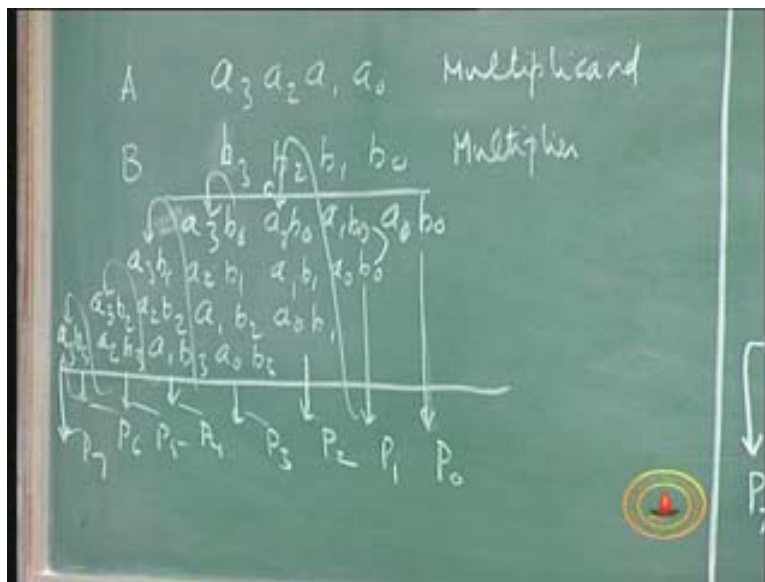 A a₃ a₂ a₁ a₀ Multiplicand
B b₃ b₂ b₁ b₀ Multiplier
a₃b₀ a₂b₀ a₁b₀ a₀b₀
a₃b₁ a₂b₁ a₁b₁ a₀b₀
a₃b₂ a₂b₂ a₁b₂ a₀b₁
a₃b₃ a₂b₃ a₁b₃ a₀b₃
P₇ P₆ P₅ P₄ P₃ P₂ P₁ P₀